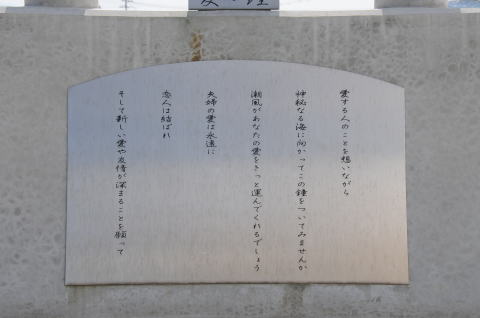 愛する人のことを想いながら
神秘なる海に向かってこの鐘をついてみませんか
潮風があなたの愛をきっと運んでくれるでしょう
夫婦の愛は永遠に
恋人は結ばれ
そして新しい愛や友情が深まることを願って